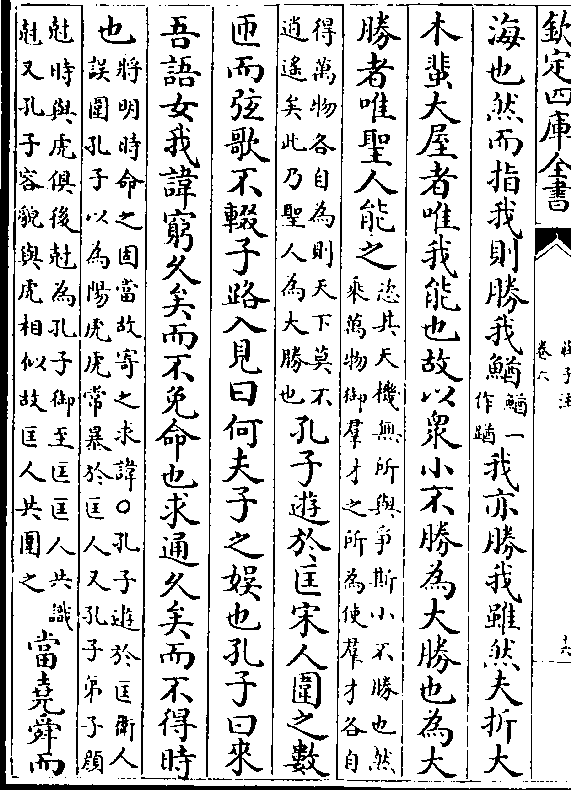 欽定四庫全書
莊子注
卷六
海也然而指我則勝我鰌
鰌一
作
我亦勝我雖然夫折大
木蜚大屋者唯我能也故以衆小不勝為大勝也為大
勝者唯聖人能之
恣其天機無所與爭斯小不勝也然
乗萬物御羣才之所為使羣才各自
得萬物各自為則天下莫不
逍遙矣此乃聖人為大勝也
孔子遊於匡宋人圍之數
匝而弦歌不輟子路入見曰何夫子之娛也孔子曰來
吾語女我諱窮久矣而不免命也求通久矣而不得時
也
將明時命之固當故寄之求諱○孔子遊於匡衛人
誤圍孔子以為陽虎虎常暴於匡人又孔子弟子顔
尅時與虎俱後尅為孔子御至匡匡人共識
尅又孔子容貌與虎相似故匡人共圍之
當堯舜而